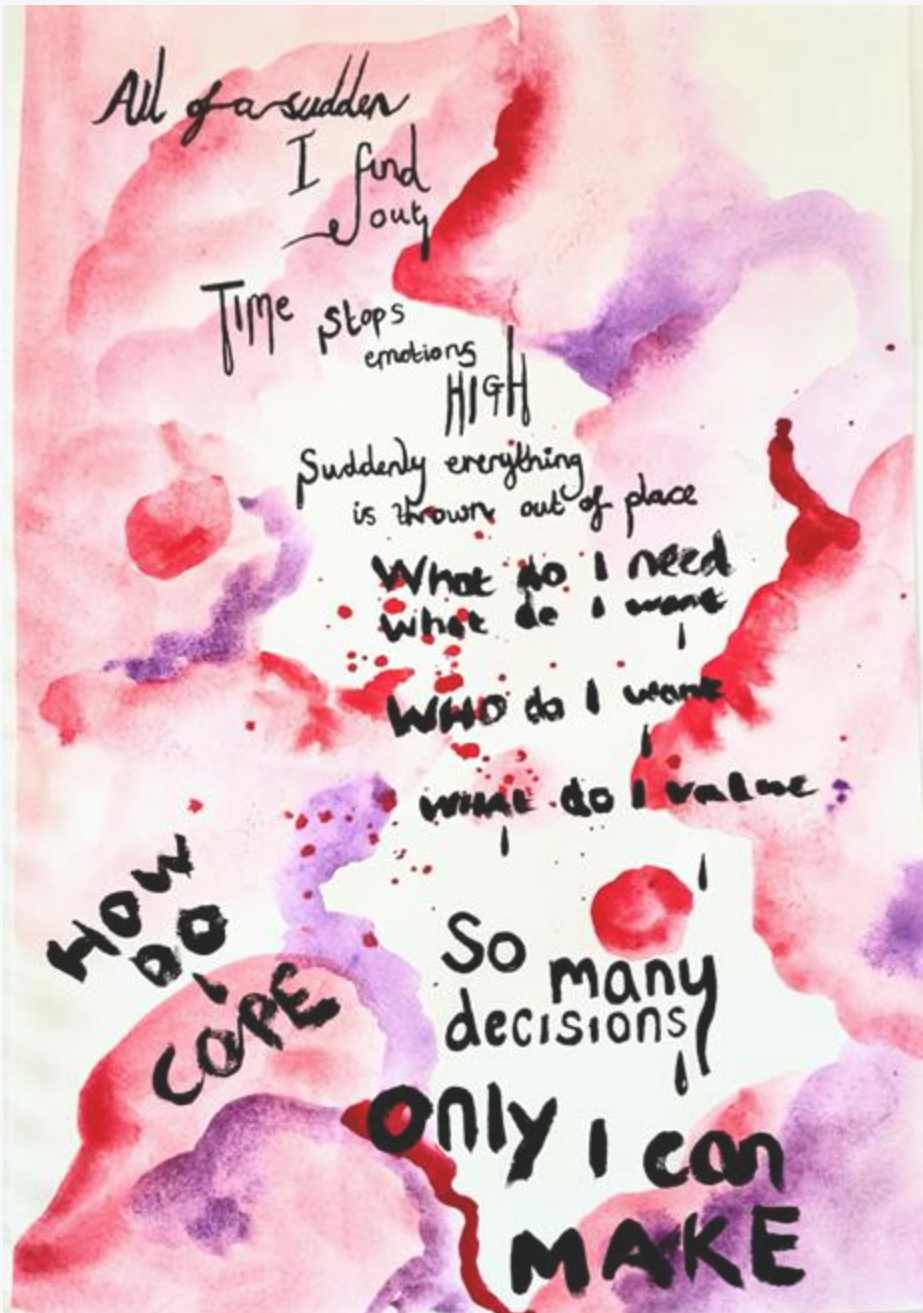 All of a sudden
I find
out
TIME stops
emotions
HIGH
Suddenly everything
is thrown out of place
What do I need
What do I want
WHO do I want
WHAT do I value
HOW
DO
I
COPE
So many
decisions
Only I can
MAKE